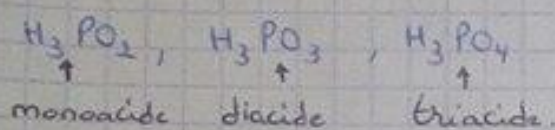 H₃PO₂, H₃PO₃, H₃PO₄
↑ ↑ ↑
monoacide diacide triacide